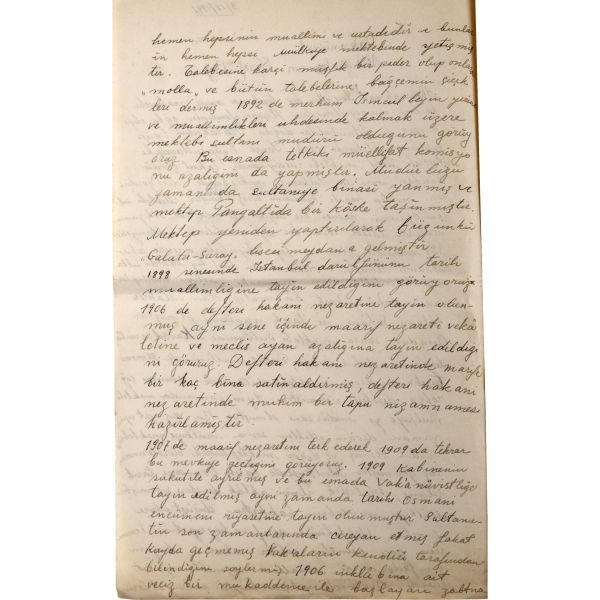 hemen hepsinin muallimi ve üstadıdır ve bunlar
ın hemen hepsi mülkiye mektebinde yetişmiş
tir. Talebesine karşı müşfik bir peder olup onlar
"molla" ve bütün talebelerine bahçemin çiçek
leri dermiş 1892 de merhum İsmail beyin yerine
ve muallimlikleri uhdesinde kalmak üzere
mektebi sultani müdürü olduğunu görüy
oruz. Bu esnada tetkiki müellifat komisyo
nu azalığını da yapmıştır. Müdürlüğü
zamanında sultaniye binası yanmış ve
mektep Pangaltıda bir köşke taşınmıştır.
Mektep yeniden yaptırılarak bügünkü
Galata-Saray lisesi meydana gelmiştir
1898 senesinde İstanbul darülfünunu tarih
muallimliğine tayin edildiğini görüyoruz
1906 de defteri hakani nezaretine tayin olun-
muş ayni sene içinde maarif nezareti vekâ
letine ve meclis ayan azalığına tayin edildiği
ni görürüz. Defteri hakani nezaretinde
bir kaç bina satın aldırmış, defteri hakani
nezaretinde mukim bir tapu nizamnamesi
hazırlamıştır
190 de maarif nezaretini terk ederek 1909 da tekrar
bu mevkiye geçtiğini görüyoruz. 1909 Kabinenin
sukutile ayrılmış ve bu esnada Vak'a nüvistliğe
tayin edilmiş ayni zamanda tarihi Osmani
encümeni riyasetine tayin olunmuştur Sultana-
tın son zamanlarında cireyan etmiş fakat
kayda geçmemiş Vak'aların kendisi tarafından
bilindiğini söylermiş 1906 inkilâbına ait
veciz bir mukaddeme ile başlayan zabtna